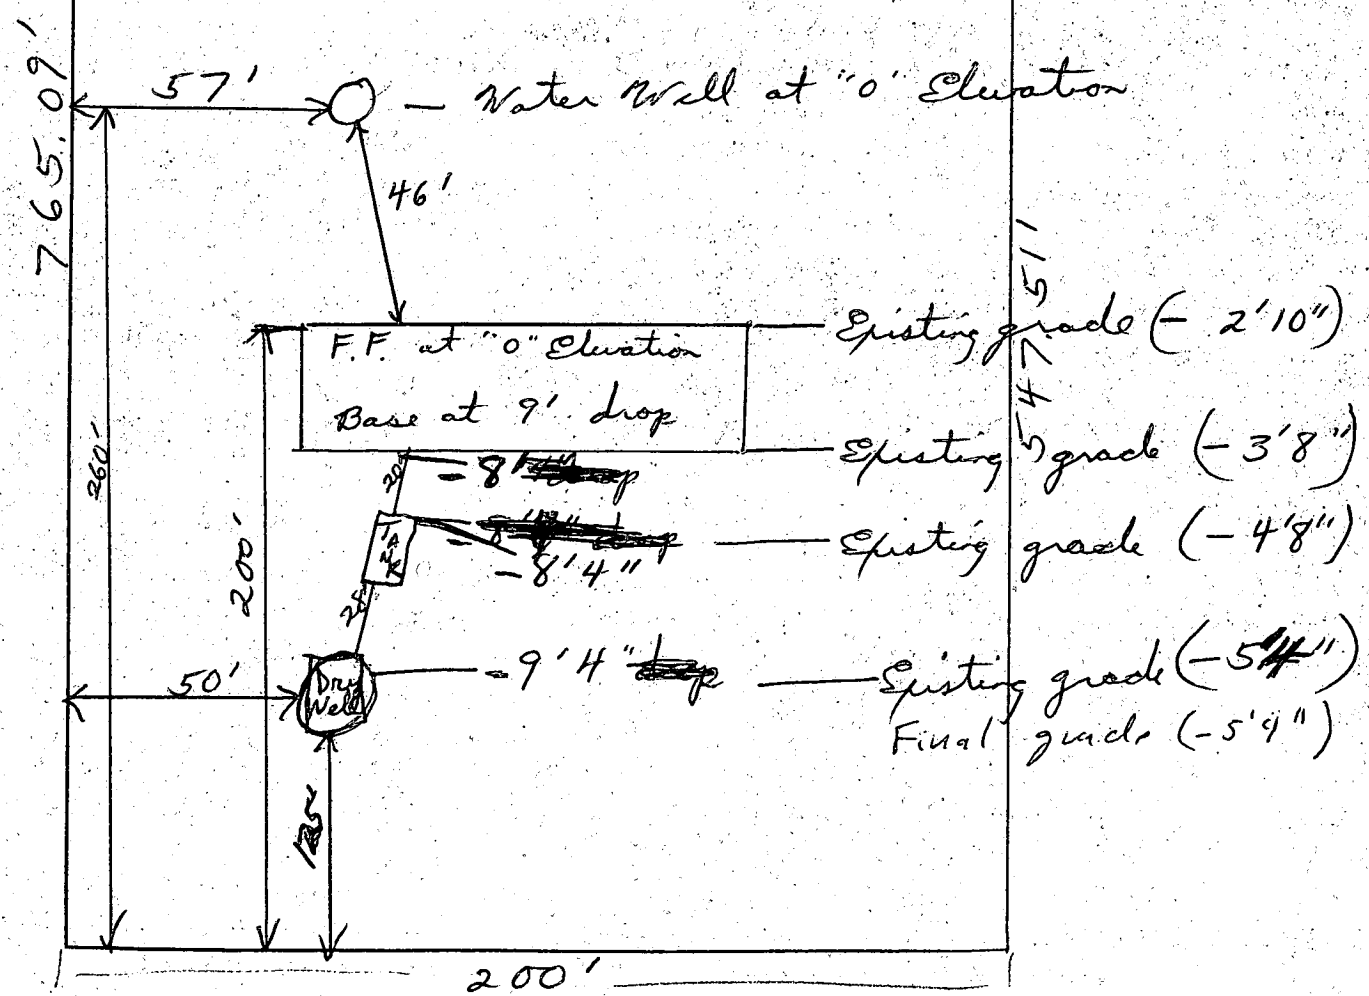 765.09'
57'
— Water Well at "0' Elevation
46'
F.F. at "0" Elevation
Base at 9' drop
Existing grade (- 2'10")
547.511
Existing grade (-3'8")
260'
200'
20'
- 8'
TANK
- 8'4"
Existing grade (-4'8")
25'
Dry
Well
- 9'4"
Existing grade
Final grade (-5'4")
50'
200'